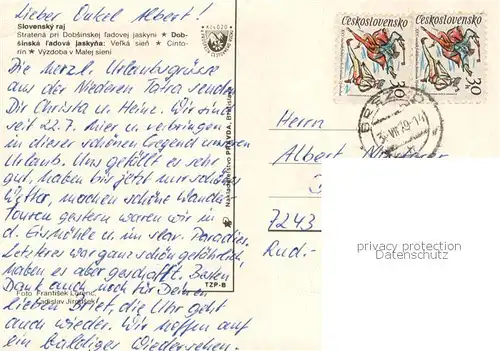 Lieber Onkel Albert!
Slovenský raj
Stratená pri Dobšinskej ľadovej jaskyni ★ Dob-
šinská ľadová jaskyňa: Veľká sieň ★ Cinto-
rín ★ Výzdoba v Malej sieni
Die herzl. Urlaubsgrüsse
aus der Niederen Tatra senden
Dir Christa u. Heinz. Wir sind
seit 22.7. hier u. verbringen
in dieser schönen Gegend unseren
Urlaub. Uns gefällt es sehr
gut, haben bis jetzt nur schönes
Wetter, machen schöne Wander-
touren gestern waren wir in
d. Eishöhle u. im slow. Paradies.
Letzteres war ganz schön gefährlich,
haben es aber geschafft. Besten
Dank auch noch für Deinen
lieben Brief, die Uhr geht
auch wieder. Wir hoffen auf
ein baldiges Wiedersehen.
Foto František Lorenc,
Ladislav Jiroušek
Nakladateľstvo PRAVDA, Bratislava
TZP-B
Československo
30h
Československo
30h
Herrn
Albert
7243
Rud.-
privacy protection
Datenschutz